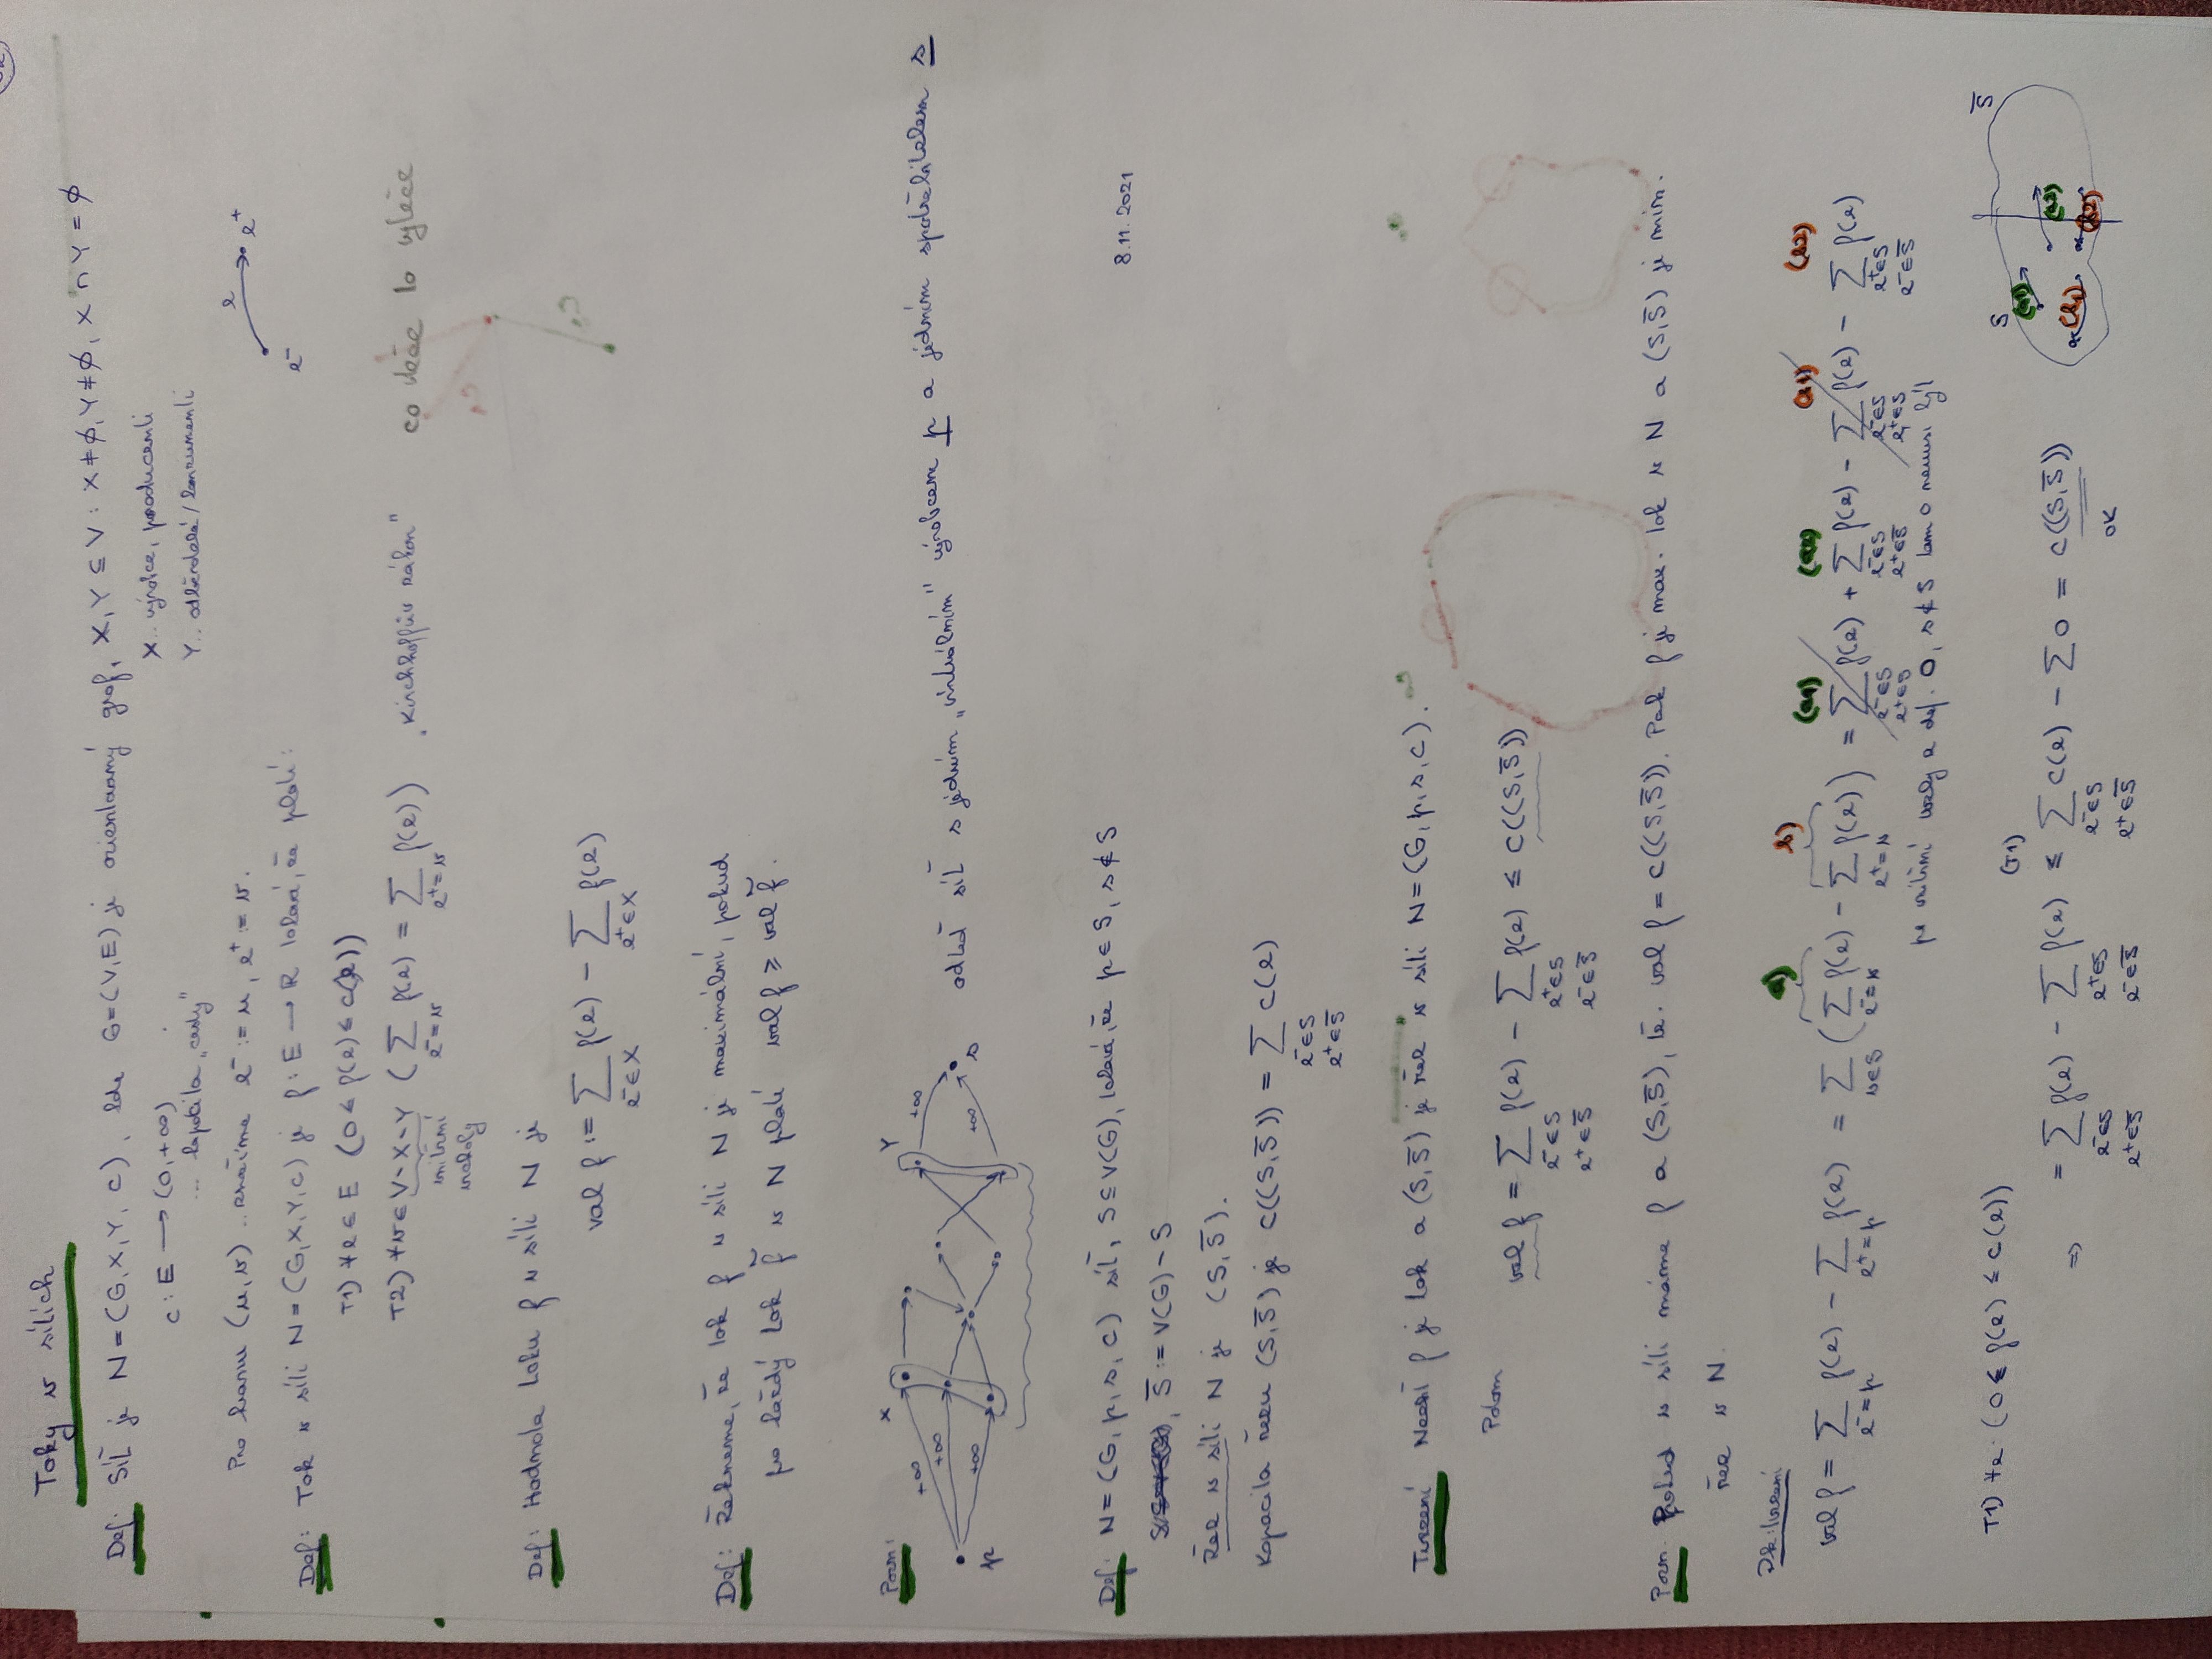 Toky v sítích
Def: Síť je N = (G, X, Y, c), kde G=(V,E) je orientovaný graf, X,Y ⊆ V: X ≠ ∅, Y ≠ ∅, X ∩ Y = ∅
c: E → (0,+∞)
... kapacita „cesty"
X.. výrobce, producenti
Y.. odběratelé/konzumenti
Pro hranu (u,v) .. značíme e⁻ := u, e⁺ := v.
e⁻ e e⁺
Def: Tok v síti N = (G,X,Y,c) je f: E → R taková, že platí:
T1) ∀e∈E (0 ≤ f(e) ≤ c(e))
T2) ∀v∈V-X-Y (∑_{e⁻=v} f(e) = ∑_{e⁺=v} f(e)) „Kirchhoffův zákon" co vteče to vyteče
vnitřní
vrcholy
Def: Hodnota toku f v síti N je
val f := ∑_{e⁻∈X} f(e) - ∑_{e⁺∈X} f(e)
Def: Řekneme, že tok f v síti N je maximální, pokud
pro každý tok f̃ v N platí val f ≥ val f̃.
Pozn: p +∞ +∞ +∞ X Y +∞ +∞ s
odteď síť s jedním „virtuálním" výrobcem p a jedním spotřebitelem s
8.11.2021
Def: N = (G, p, s, c) síť, S ⊆ V(G), taková, že p∈S, s∉S
S̄ := V(G) - S
Řez v síti N je (S,S̄).
Kapacita řezu (S,S̄) je c((S,S̄)) = ∑_{e⁻∈S, e⁺∈S̄} c(e)
Tvrzení Nechť f je tok a (S,S̄) je řez v síti N=(G,p,s,c).
Potom val f = ∑_{e⁻∈S, e⁺∈S̄} f(e) - ∑_{e⁺∈S, e⁻∈S̄} f(e) ≤ c((S,S̄))
Pozn. Pokud v síti máme f a (S,S̄), tž. val f = c((S,S̄)). Pak f je max. tok v N a (S,S̄) je minim.
řez v N.
Dk: tvrzení
a) b) (a1) (a2) (b1) (b2)
val f = ∑_{e⁻=p} f(e) - ∑_{e⁺=p} f(e) = ∑_{v∈S} (∑_{e⁻=v} f(e) - ∑_{e⁺=v} f(e)) = ∑_{e⁻∈S, e⁺∈S} f(e) + ∑_{e⁻∈S, e⁺∈S̄} f(e) - ∑_{e⁻∈S, e⁺∈S} f(e) - ∑_{e⁺∈S, e⁻∈S̄} f(e)
pro vnitřní vrcholy z def. 0, s∉S tam 0 nemusí být
S S̄
(a1) (a2)
(b1) (b2)
T1) ∀e: (0 ≤ f(e) ≤ c(e))
⇒ = ∑_{e⁻∈S, e⁺∈S̄} f(e) - ∑_{e⁺∈S, e⁻∈S̄} f(e) ≤ (T1) ∑_{e⁻∈S, e⁺∈S̄} c(e) - ∑ 0 = c((S,S̄))
OK